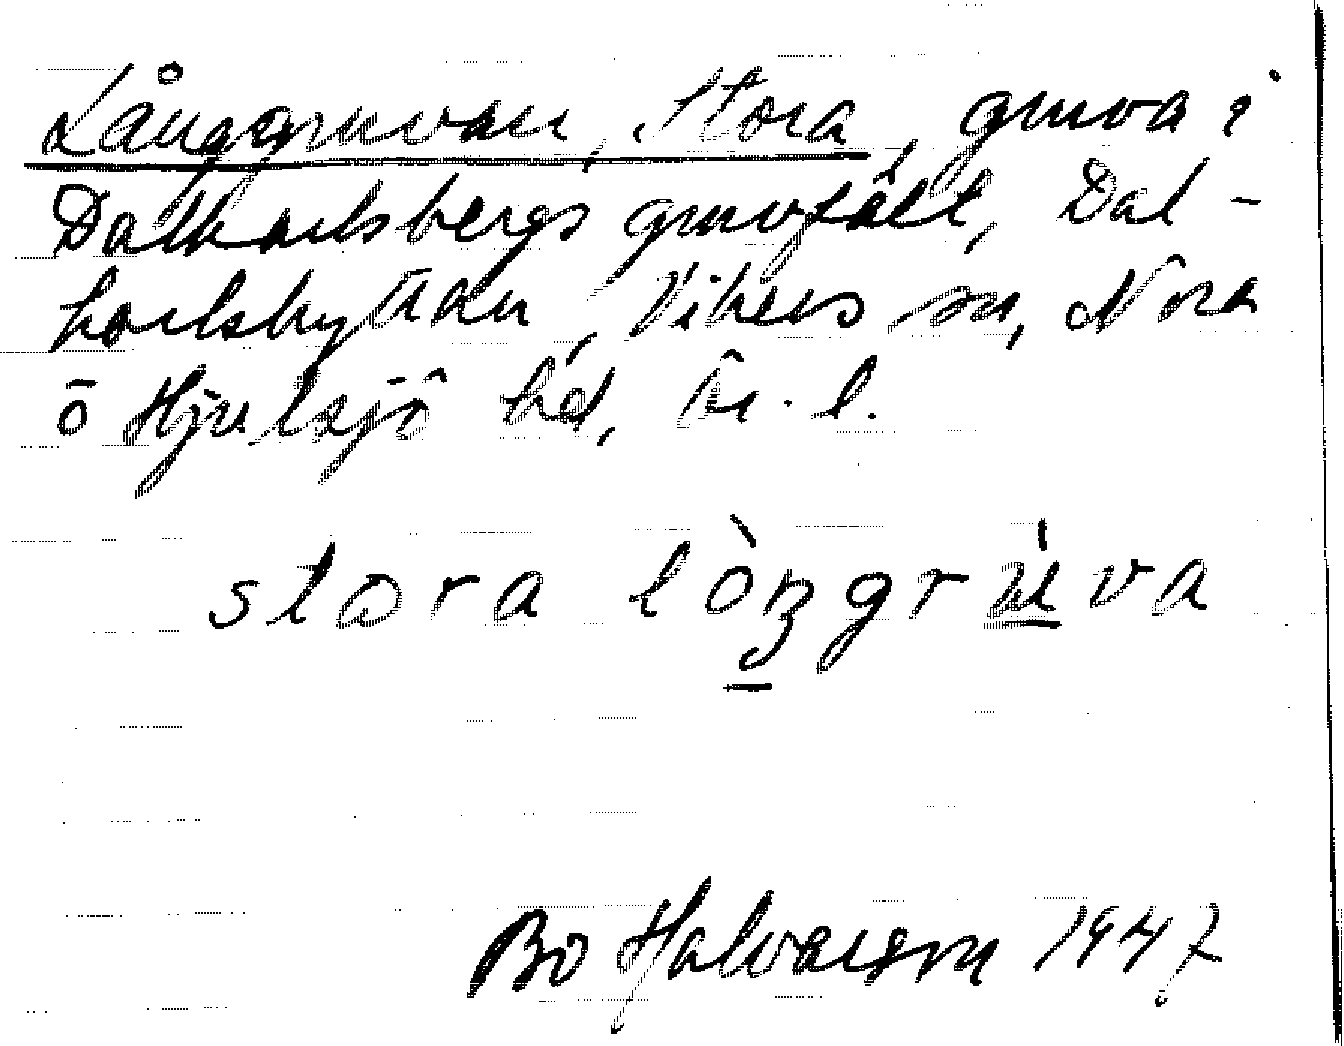 Långgruvan, Stora, gruva i
Dalkarlsbergs gruvfält, Dal-
karlshyttan, Vikers sn, Nora
o Hjulsjö hd, Ör. l.
stora lòŋgrúva
Bo Halvarson 1947